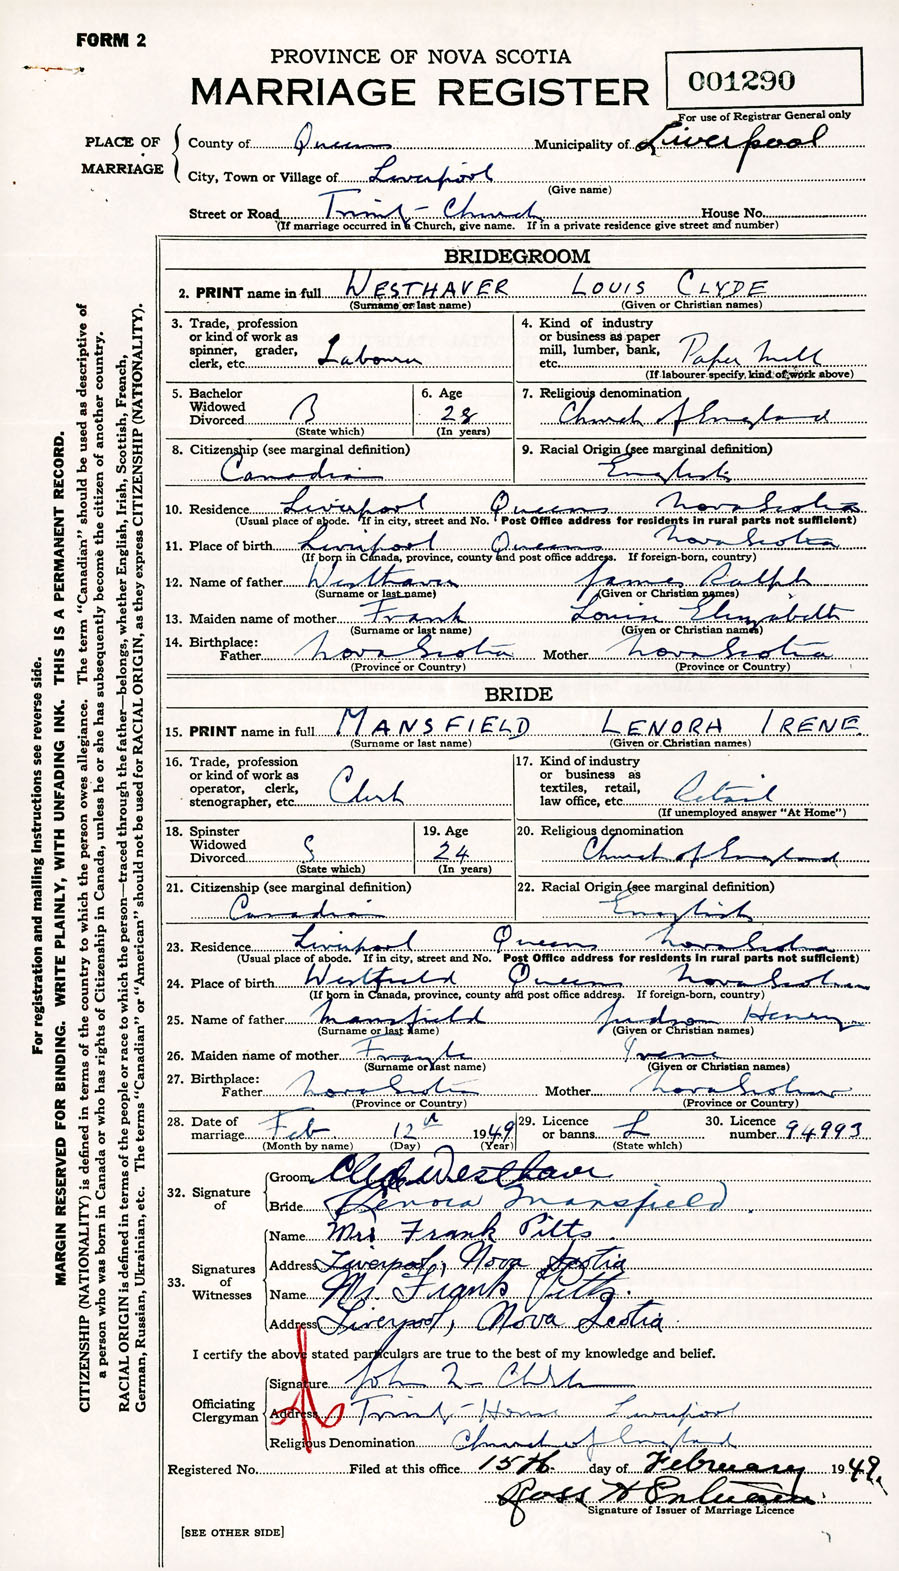 FORM 2
PROVINCE OF NOVA SCOTIA
MARRIAGE REGISTER
001290
For use of Registrar General only
PLACE OF MARRIAGE
County of Queens Municipality of Liverpool
City, Town or Village of Liverpool
(Give name)
Street or Road Trinity Church House No.
(If marriage occurred in a Church, give name. If in a private residence give street and number)
BRIDEGROOM
2. PRINT name in full WESTHAVER LOUIS CLYDE
(Surname or last name) (Given or Christian names)
3. Trade, profession or kind of work as spinner, grader, clerk, etc. Labourer
4. Kind of industry or business as paper mill, lumber, bank, etc. Paper Mill
(If labourer specify, kind of work above)
5. Bachelor Widowed Divorced B
(State which)
6. Age 28
(In years)
7. Religious denomination
Church of England
8. Citizenship (see marginal definition)
Canadian
9. Racial Origin (see marginal definition)
English
10. Residence Liverpool Queens Nova Scotia
(Usual place of abode. If in city, street and No. Post Office address for residents in rural parts not sufficient)
11. Place of birth Liverpool Queens Nova Scotia
(If born in Canada, province, county and post office address. If foreign-born, country)
12. Name of father Westhaver James Ralph
(Surname or last name) (Given or Christian names)
13. Maiden name of mother Frank Louise Elizabeth
(Surname or last name) (Given or Christian names)
14. Birthplace: Father Nova Scotia Mother Nova Scotia
(Province or Country) (Province or Country)
BRIDE
15. PRINT name in full MANSFIELD LENORA IRENE
(Surname or last name) (Given or Christian names)
16. Trade, profession or kind of work as operator, clerk, stenographer, etc. Clerk
17. Kind of industry or business as textiles, retail, law office, etc. Retail
(If unemployed answer "At Home")
18. Spinster Widowed Divorced S
(State which)
19. Age 24
(In years)
20. Religious denomination
Church of England
21. Citizenship (see marginal definition)
Canadian
22. Racial Origin (see marginal definition)
English
23. Residence Liverpool Queens Nova Scotia
(Usual place of abode. If in city, street and No. Post Office address for residents in rural parts not sufficient)
24. Place of birth Westfield Queens Nova Scotia
(If born in Canada, province, county and post office address. If foreign-born, country)
25. Name of father Mansfield Judson Henry
(Surname or last name) (Given or Christian names)
26. Maiden name of mother Irene
(Surname or last name) (Given or Christian names)
27. Birthplace: Father Nova Scotia Mother Nova Scotia
(Province or Country) (Province or Country)
28. Date of marriage Feb 12th 1949
(Month by name) (Day) (Year)
29. Licence or banns L
(State which)
30. Licence number 94993
32. Signature of
Groom Clyde Westhaver
Bride Lenora Mansfield
33. Signatures of Witnesses
Name Mrs Frank Pitts
Address Liverpool, Nova Scotia
Name Mr. Frank Pitts.
Address Liverpool, Nova Scotia.
I certify the above stated particulars are true to the best of my knowledge and belief.
Officiating Clergyman
Signature John
Address Trinity House Liverpool
Religious Denomination Church of England
Registered No. Filed at this office 15th day of February 1949.
Ross
Signature of Issuer of Marriage Licence
[SEE OTHER SIDE]
For registration and mailing instructions see reverse side.
MARGIN RESERVED FOR BINDING. WRITE PLAINLY, WITH UNFADING INK. THIS IS A PERMANENT RECORD.
CITIZENSHIP (NATIONALITY) is defined in terms of the country to which the person owes allegiance. The term "Canadian" should be used as descriptive of
a person who was born in Canada or who has rights of Citizenship in Canada, unless he or she has subsequently become the citizen of another country.
RACIAL ORIGIN is defined in terms of the people or race to which the person—traced through the father—belongs, whether English, Irish, Scottish, French,
German, Russian, Ukrainian, etc. The terms "Canadian" or "American" should not be used for RACIAL ORIGIN, as they express CITIZENSHIP (NATIONALITY).